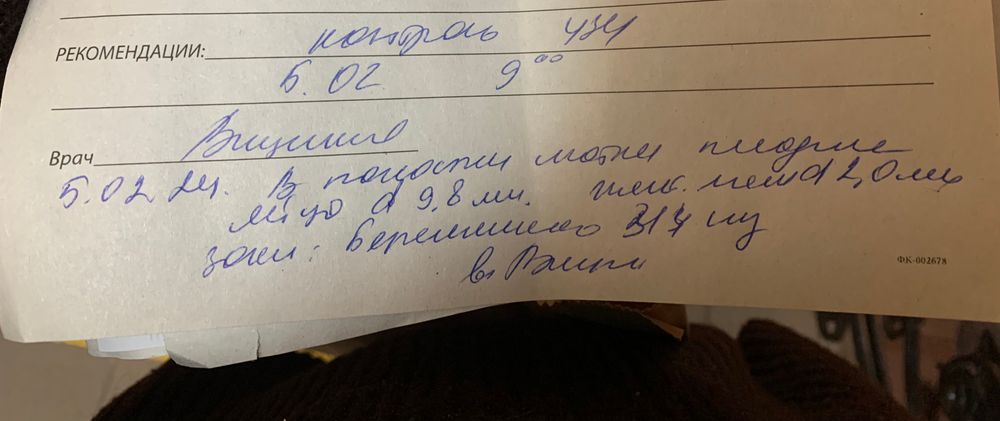 РЕКОМЕНДАЦИИ: контроль УЗИ
5.02. 9⁰⁰
Врач
5.02.24. В полости матки плодное
яйцо d 9,8 мм. желт. меш d 2,0 мм
закл: Беременность 3/4 нед
ФК-002678